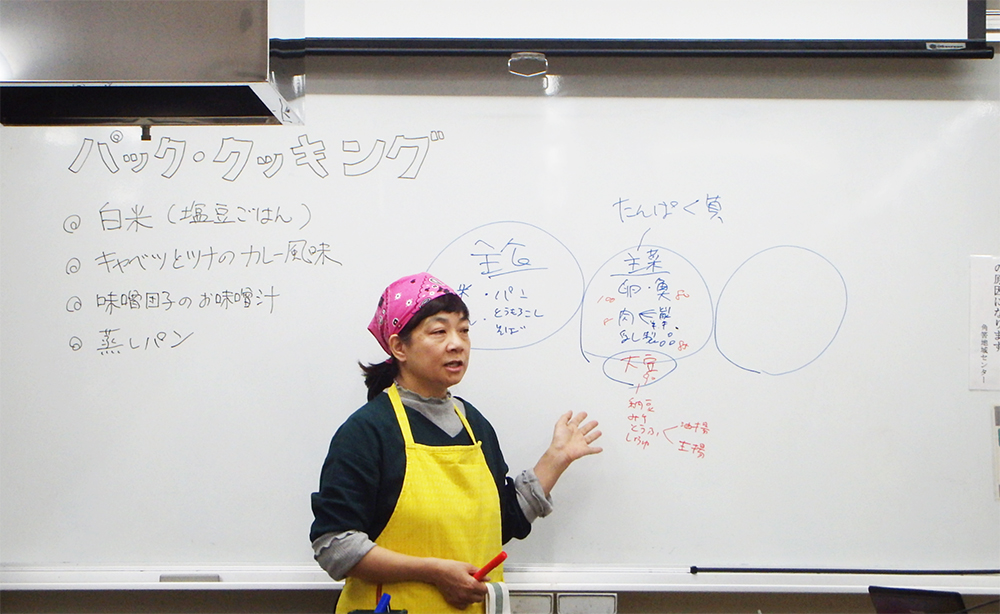 パック・クッキング
◎ 白米(塩豆ごはん)
◎ キャベツとツナのカレー風味
◎ 味噌団子のお味噌汁
◎ 蒸しパン
主食
米
・パン
・とうもろこし
そば
たんぱく質
主菜
卵・魚
100
80
肉
乳製品
大豆
納豆
みそ
とうふ
油揚
生揚
の原因になります
角筈地域センター